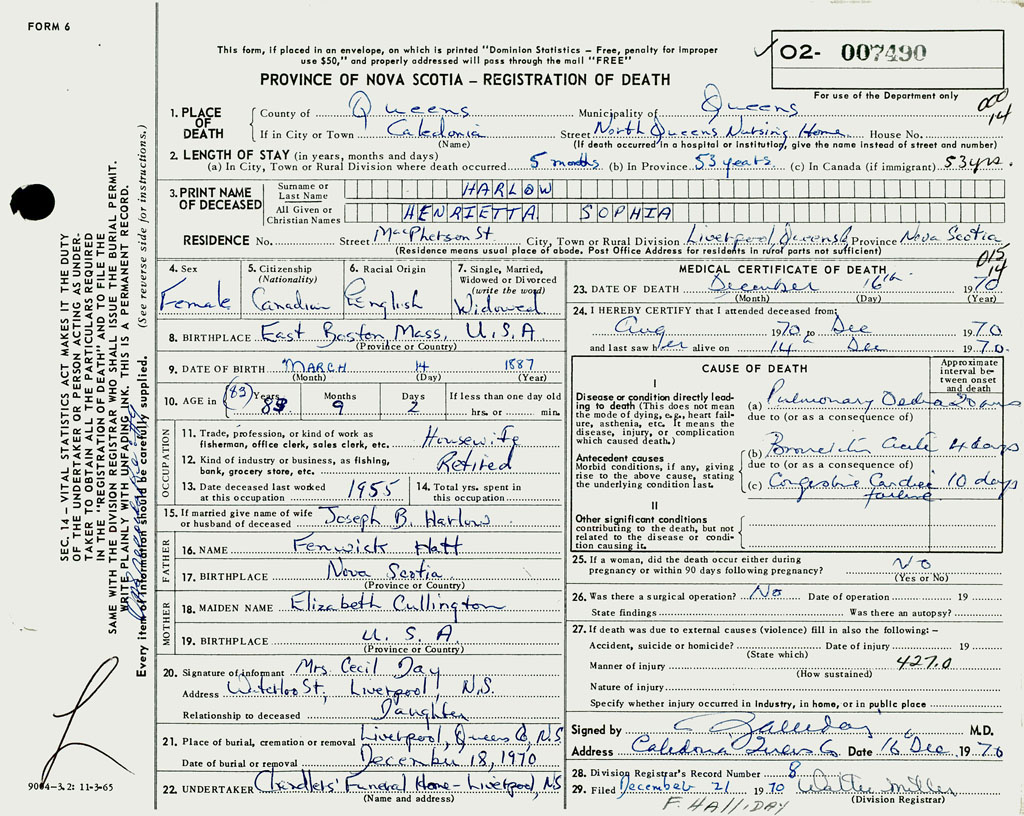 FORM 6
This form, if placed in an envelope, on which is printed "Dominion Statistics – Free, penalty for improper
use $50," and properly addressed will pass through the mail "FREE"
PROVINCE OF NOVA SCOTIA – REGISTRATION OF DEATH
✓ 02- 007490
For use of the Department only
000
14
1. PLACE OF DEATH
County of Queens Municipality of Queens
If in City or Town Caledonia Street North Queens Nursing Home House No.
(Name) (If death occurred in a hospital or institution, give the name instead of street and number)
2. LENGTH OF STAY (in years, months and days)
(a) In City, Town or Rural Division where death occurred 5 months (b) In Province 53 years (c) In Canada (if immigrant) 53 yrs.
3. PRINT NAME OF DECEASED
Surname or Last Name HARLOW
All Given or Christian Names HENRIETTA SOPHIA
RESIDENCE No. Street MacPherson St City, Town or Rural Division Liverpool, Queens Province Nova Scotia
(Residence means usual place of abode. Post Office Address for residents in rural parts not sufficient)
015
14
4. Sex
Female
5. Citizenship
(Nationality)
Canadian
6. Racial Origin
English
7. Single, Married,
Widowed or Divorced
(write the word)
Widowed
8. BIRTHPLACE East Boston, Mass, U.S.A
(Province or Country)
9. DATE OF BIRTH MARCH 14 1887
(Month) (Day) (Year)
10. AGE in (83) Years 83 Months 9 Days 2 If less than one day old
hrs. or min.
OCCUPATION
11. Trade, profession, or kind of work as
fisherman, office clerk, sales clerk, etc. Housewife
12. Kind of industry or business, as fishing,
bank, grocery store, etc. Retired
13. Date deceased last worked
at this occupation 1955
14. Total yrs. spent in
this occupation
15. If married give name of wife
or husband of deceased Joseph B. Harlow
FATHER
16. NAME Fenwick Hatt
17. BIRTHPLACE Nova Scotia
(Province or Country)
MOTHER
18. MAIDEN NAME Elizabeth Cullington
19. BIRTHPLACE U. S. A.
(Province or Country)
20. Signature of informant Mrs. Cecil Day
Address Waterloo St, Liverpool, N.S.
Relationship to deceased Daughter
21. Place of burial, cremation or removal Liverpool, Queens Co, N.S
Date of burial or removal December 18, 1970
22. UNDERTAKER Chandlers' Funeral Home – Liverpool, NS
(Name and address)
MEDICAL CERTIFICATE OF DEATH
23. DATE OF DEATH December 16th 1970
(Month) (Day) (Year)
24. I HEREBY CERTIFY that I attended deceased from:
Aug 1970 to Dec 1970
and last saw her alive on 14th Dec 1970.
CAUSE OF DEATH
Approximate
interval between
onset
and death
I
Disease or condition directly leading
to death (This does not mean
the mode of dying, e.g., heart failure,
asthenia, etc. It means the
disease, injury, or complication
which caused death.)
(a) Pulmonary
due to (or as a consequence of)
Antecedent causes
Morbid conditions, if any, giving
rise to the above cause, stating
the underlying condition last.
(b) 4 days
due to (or as a consequence of)
(c) Congestive Cardiac failure 10 days
II
Other significant conditions
contributing to the death, but not
related to the disease or condition
causing it.
25. If a woman, did the death occur either during
pregnancy or within 90 days following pregnancy? No
(Yes or No)
26. Was there a surgical operation? No Date of operation 19
State findings Was there an autopsy?
27. If death was due to external causes (violence) fill in also the following: –
Accident, suicide or homicide? Date of injury 19
(State which)
Manner of injury 427.0
(How sustained)
Nature of injury
Specify whether injury occurred in industry, in home, or in public place
Signed by Halliday M.D.
Address Caledonia Queens Co Date 16 Dec 1970
28. Division Registrar's Record Number 8
29. Filed December 21 1970 Walter Miller
(Division Registrar)
F. HALLIDAY
SEC. 14 – VITAL STATISTICS ACT MAKES IT THE DUTY
OF THE UNDERTAKER OR PERSON ACTING AS UNDERTAKER
TO OBTAIN ALL THE PARTICULARS REQUIRED
IN THE "REGISTRATION OF DEATH" AND TO FILE THE
SAME WITH THE DIVISION REGISTRAR WHO SHALL ISSUE THE BURIAL PERMIT.
WRITE PLAINLY WITH UNFADING INK. THIS IS A PERMANENT RECORD.
Every item of information should be carefully supplied. (See reverse side for instructions.)
9004–3.2: 11-3-65